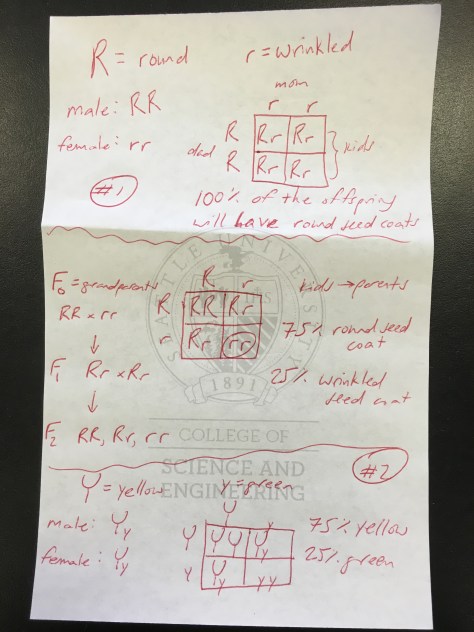 R = round    r = wrinkled
mom
male: RR    r    r
female: rr    dad    R    Rr    Rr    kids
R    Rr    Rr
#1    100% of the offspring
will have round seed coats
SEATTLE UNIVERSITY
1891
F₀ = grandparents    R    r    kids → parents
RR x rr    R    RR    Rr    75% round seed
coat
r    Rr    rr
↓
F₁    Rr x Rr    25% wrinkled
seed coat
↓
F₂    RR, Rr, rr
COLLEGE OF
SCIENCE AND
ENGINEERING
#2
Y = yellow    y = green
male: Yy    Y    y    75% yellow
Y    YY    Yy
female: Yy    y    Yy    yy    25% green